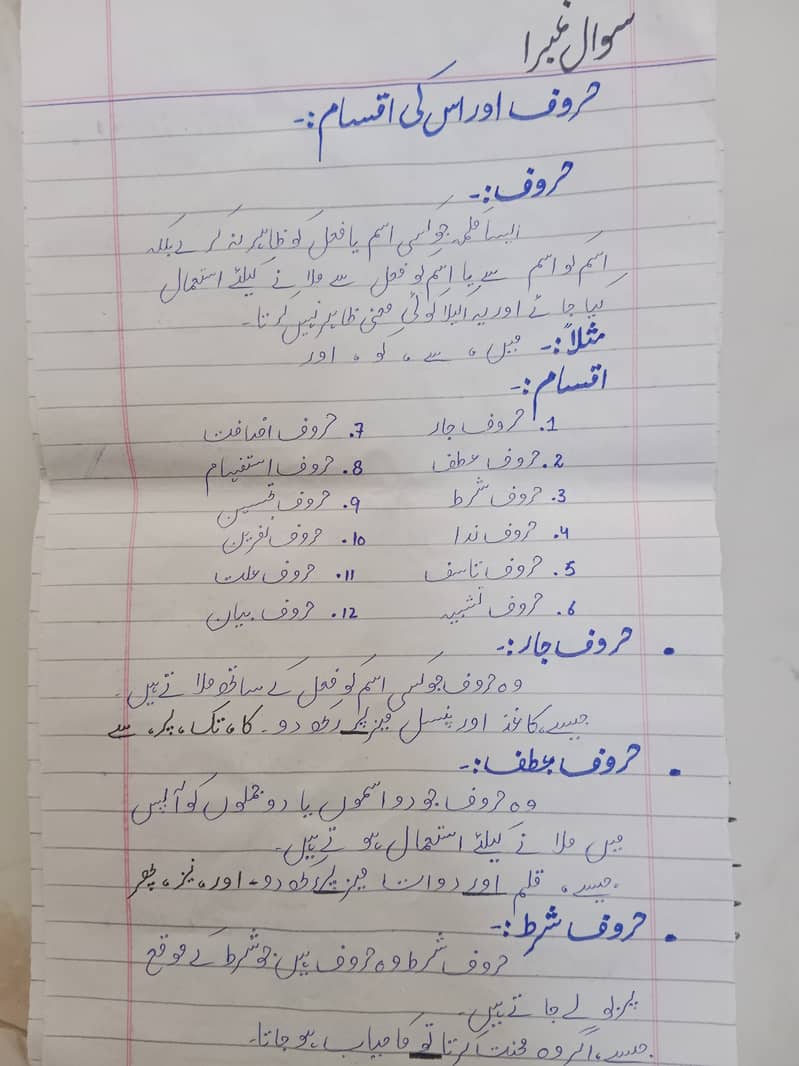 سوال نمبر 1
حروف اور اس کی اقسام:-
حروف:-
ایسا کلمہ جو کسی اسم یا فعل کو ظاہر نہ کرے بلکہ
اسم کو اسم سے یا اسم کو فعل سے ملانے کیلئے استعمال
کیا جائے اور یہ اکیلا کوئی معنی ظاہر نہیں کرتا۔
مثلاً:- میں، سے، کو، اور
اقسام:-
1. حروف جار 7. حروف اضافت
2. حروف عطف 8. حروف استفہام
3. حروف شرط 9. حروف تحسین
4. حروف ندا 10. حروف نفرین
5. حروف تاسف 11. حروف علت
6. حروف تشبیہ 12. حروف بیان
• حروف جار:-
وہ حروف جو کسی اسم کو فعل کے ساتھ ملاتے ہیں۔
جیسے، کاغذ اور پنسل میز پر رکھ دو۔ کا، تک، پر، سے
• حروف عطف:-
وہ حروف جو دو اسموں یا دو جملوں کو آپس
میں ملانے کیلئے استعمال ہوتے ہیں۔
جیسے، قلم اور دوات میز پر رکھ دو۔ اور، نیز، پھر
• حروف شرط:-
حروف شرط وہ حروف ہیں جو شرط کے موقع
پر بولے جاتے ہیں۔
جیسے، اگر وہ محنت کرتا تو کامیاب ہو جاتا۔